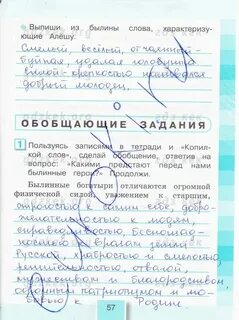 Выпиши из былины слова, характеризу-
ющие Алёшу.
Смелый, весёлый, отчаянный
буйная, удалая головушка
силой-крепостью
добрый молодец.
ОБОБЩАЮЩИЕ ЗАДАНИЯ
1 Пользуясь записями в тетради и «Копил-
кой слов», сделай обобщение, ответив на
вопрос: «Какими предстают перед нами
былинные герои?» Продолжи.
Былинные богатыри отличаются огромной
физической силой, уважением к старшим,
строгостью к самим себе, добро-
желательностью к людям,
справедливостью, беспощад-
ностью к врагам земли
Русской, храбростью и смелостью,
решительностью, отвагой,
мужеством и благородством
огромным патриотизмом и лю-
бовью к Родине
57